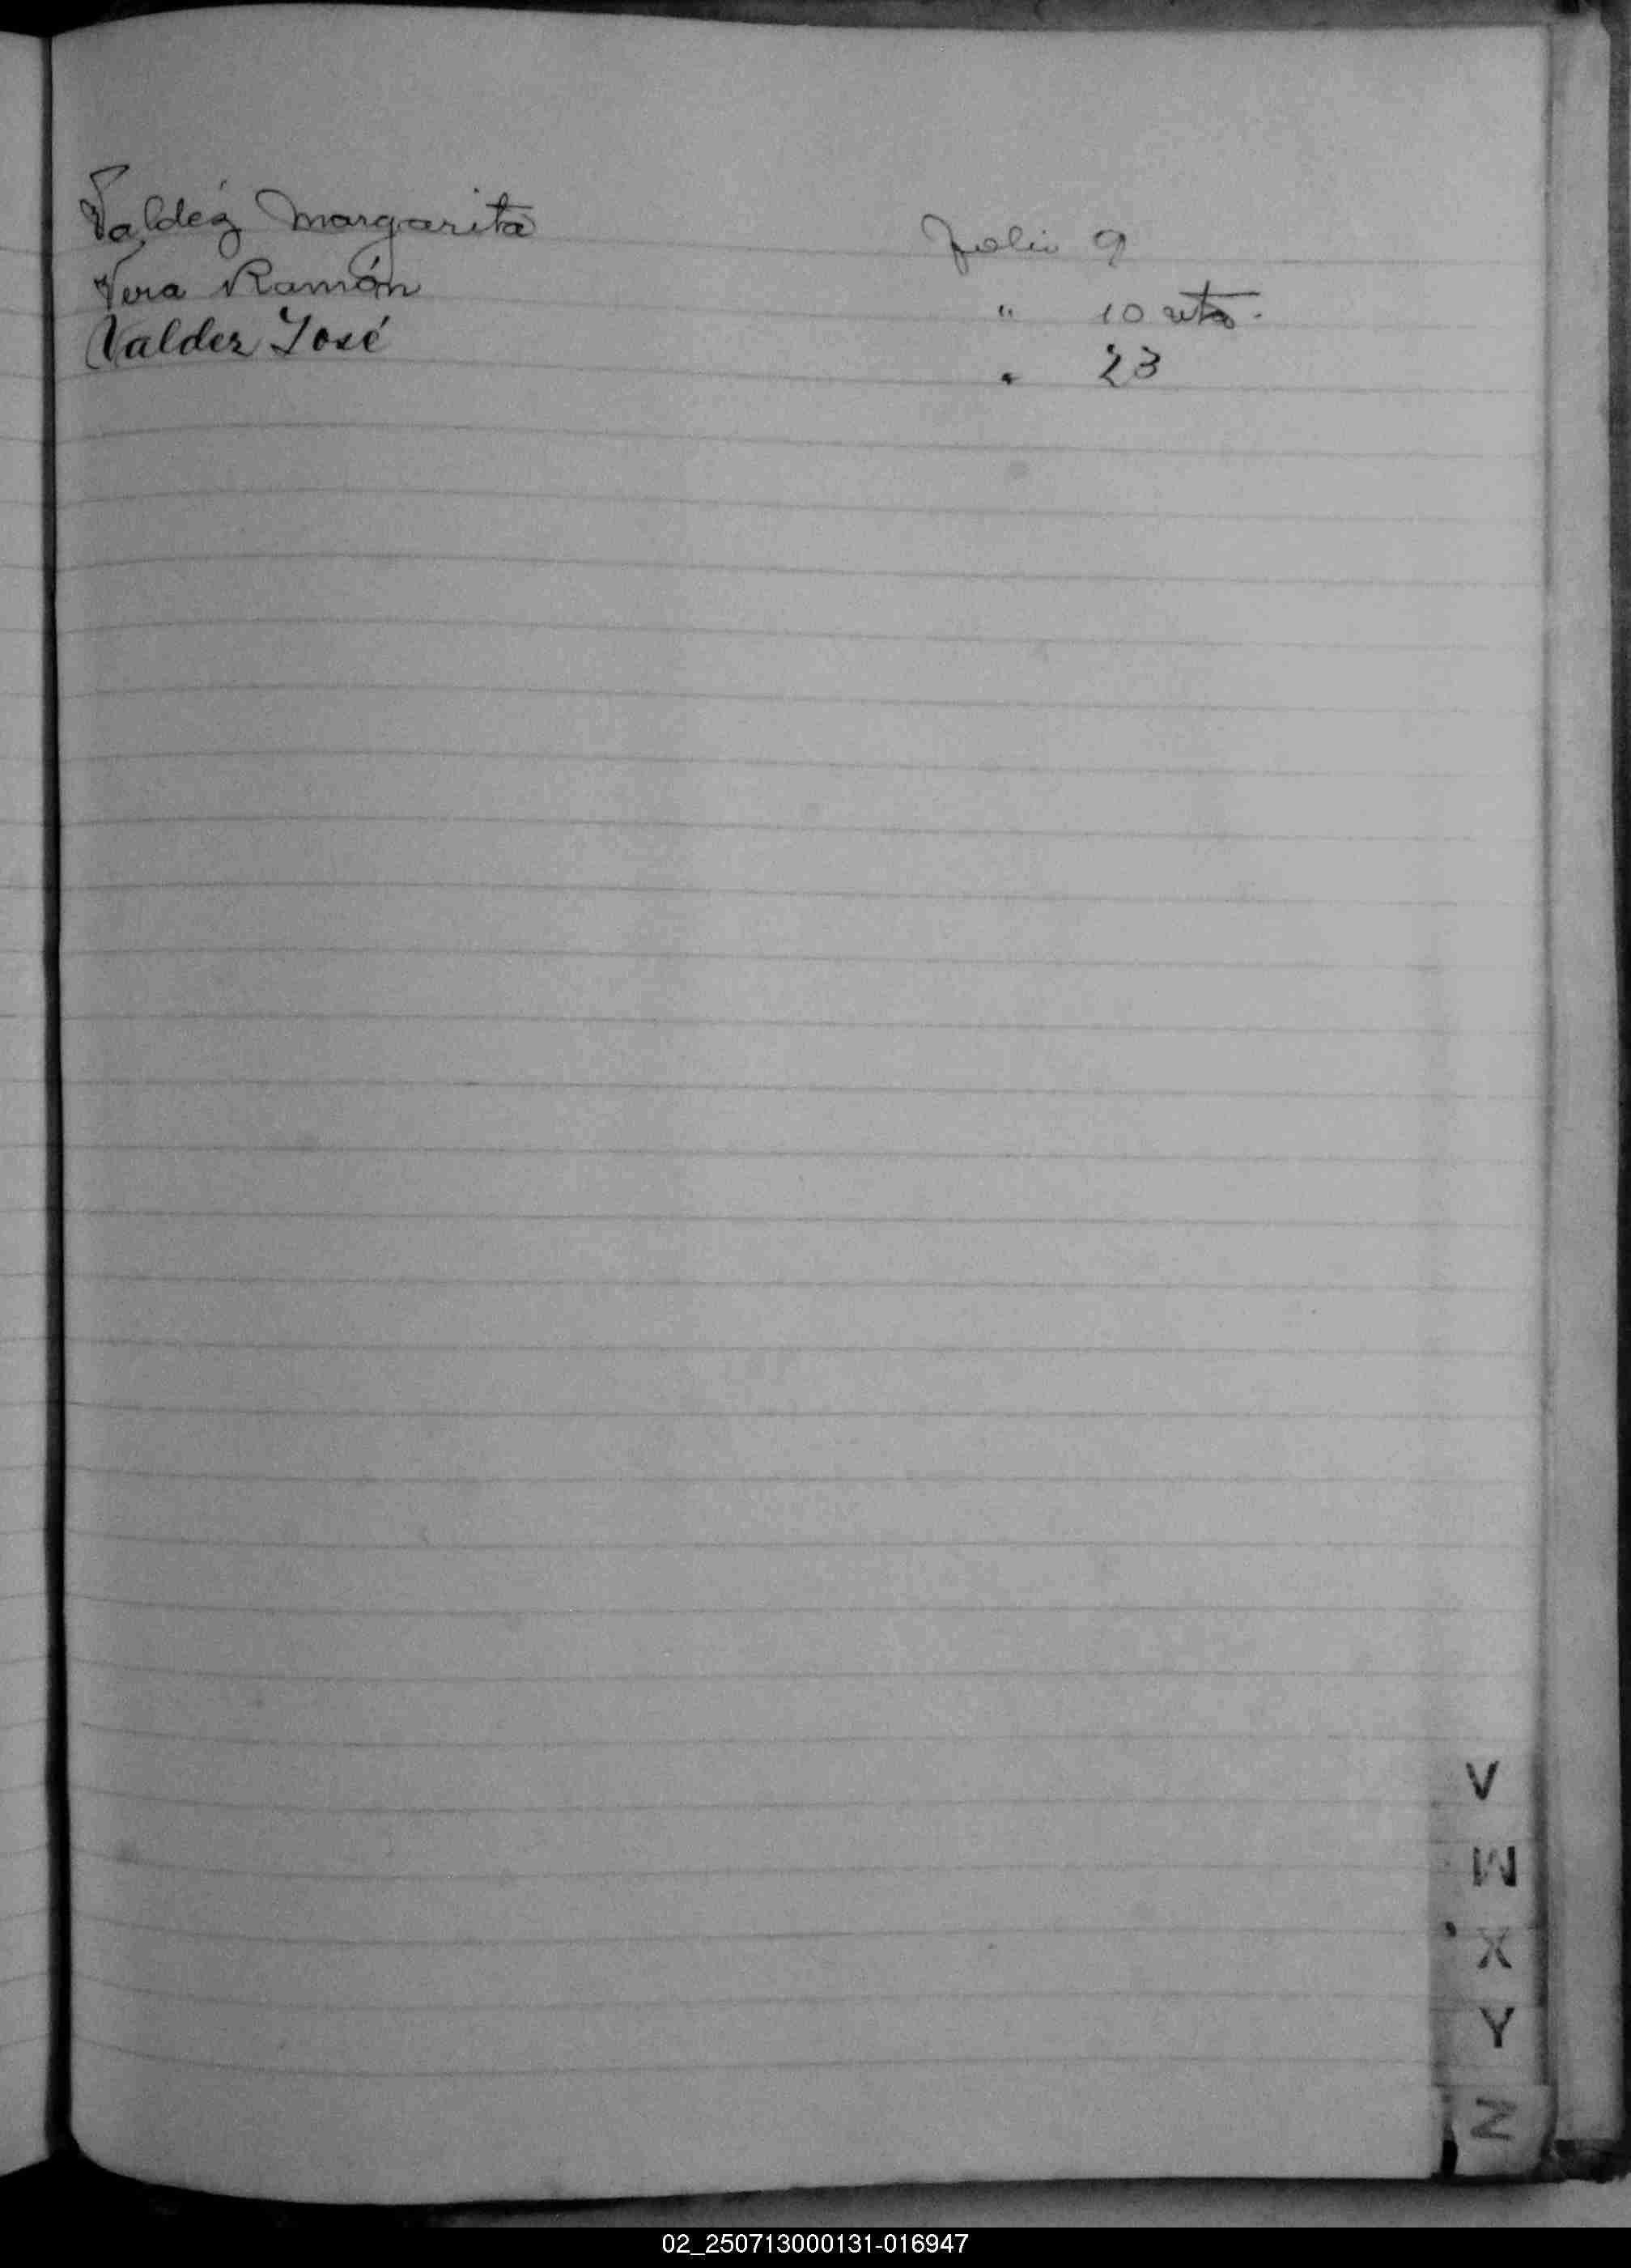 Valdéz Margarita folio 9
Vera Ramón " 10 vta.
Valdez José " 23
V
W
X
Y
Z
02_250713000131-016947